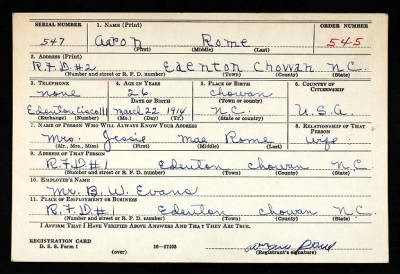 SERIAL NUMBER 1. NAME (Print) ORDER NUMBER
547 Aaron Rome 545
(First) (Middle) (Last)
2. ADDRESS (Print)
R.F.D. #2 Edenton Chowan N.C.
(Number and street or R. F. D. number) (Town) (County) (State)
3. TELEPHONE 4. AGE IN YEARS 5. PLACE OF BIRTH 6. COUNTRY OF CITIZENSHIP
none 26 Chowan
DATE OF BIRTH (Town or county)
March 22, 1914 N.C. U.S.A.
(Exchange) (Number) (Mo.) (Day) (Yr.) (State or country)
7. NAME OF PERSON WHO WILL ALWAYS KNOW YOUR ADDRESS 8. RELATIONSHIP OF THAT PERSON
Mrs. Jessie Mae Rome Wife
(Mr., Mrs., Miss) (First) (Middle) (Last)
9. ADDRESS OF THAT PERSON
R.F.D #1 Edenton Chowan N.C.
(Number and street or R. F. D. number) (Town) (County) (State)
10. EMPLOYER'S NAME
Mr. B. W. Evans
11. PLACE OF EMPLOYMENT OR BUSINESS
R.F.D. #1 Edenton Chowan N.C.
(Number and street or R. F. D. number) (Town) (County) (State)
I AFFIRM THAT I HAVE VERIFIED ABOVE ANSWERS AND THAT THEY ARE TRUE.
REGISTRATION CARD
D. S. S. Form 1 (over) 16-17105 (Registrant's signature)